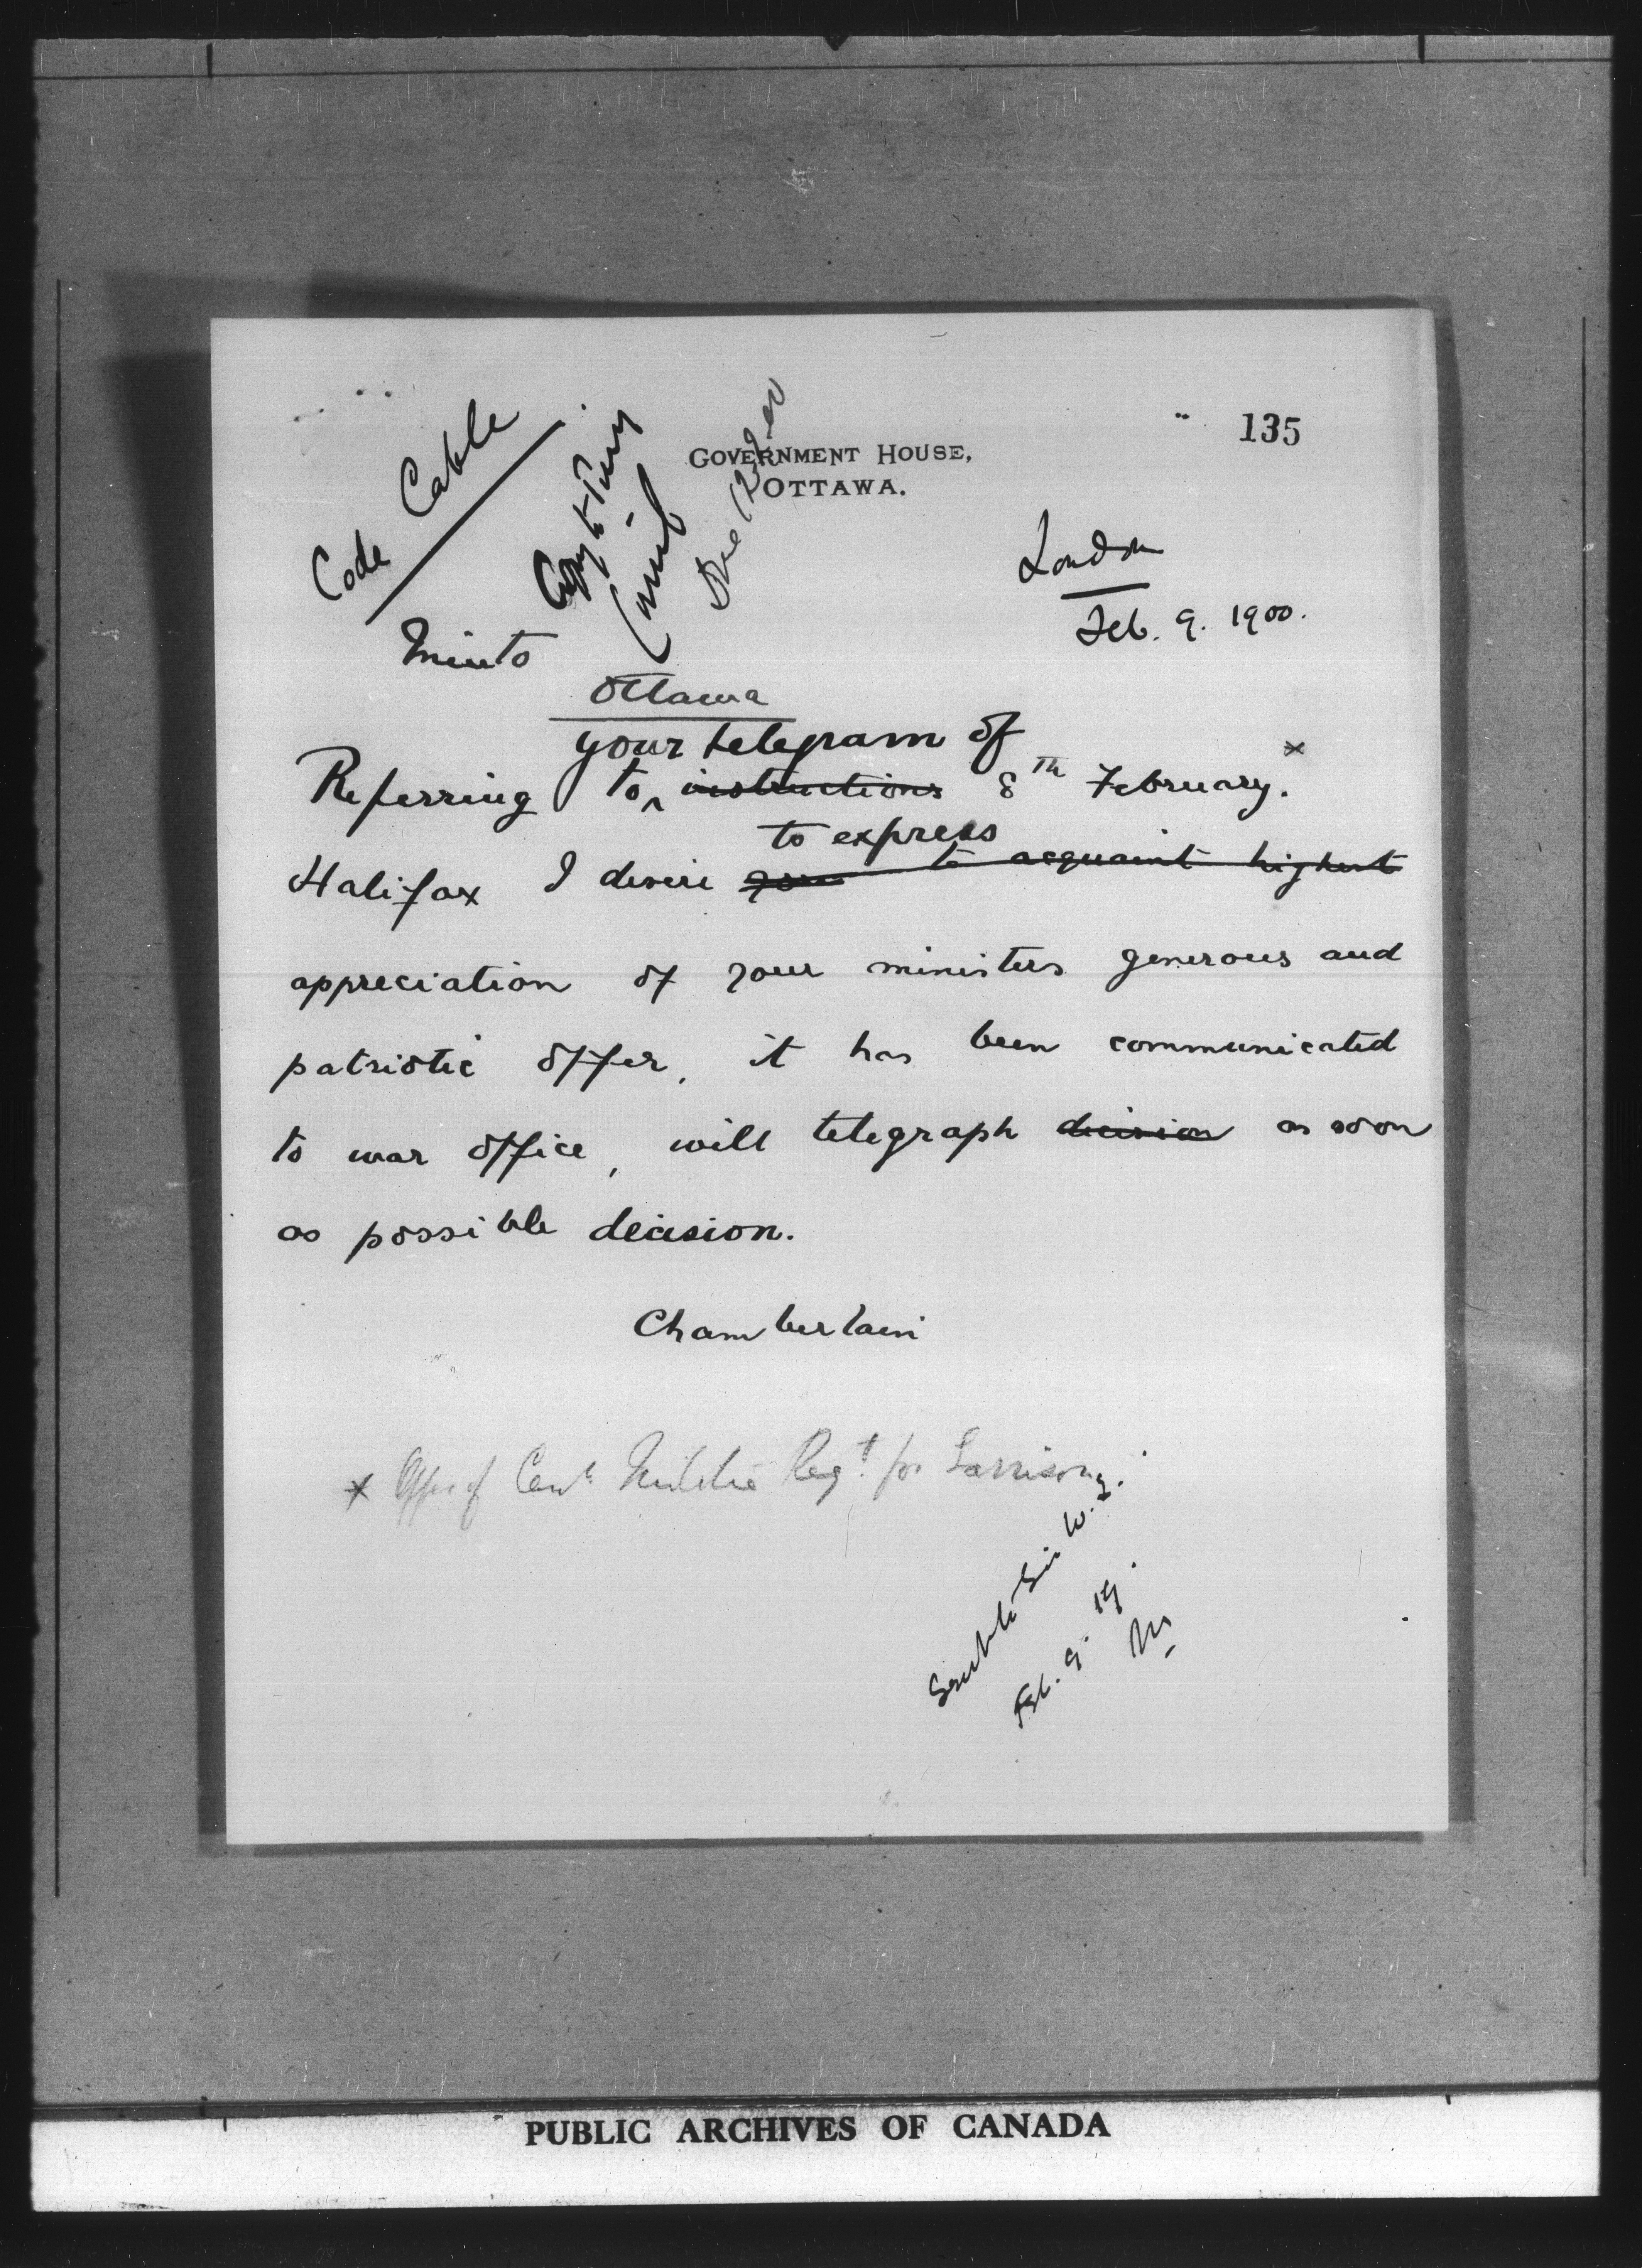 135
GOVERNMENT HOUSE,
OTTAWA.
Code Cable
Copy to Privy
Council
London
Feb. 9. 1900.
Minto
Ottawa
your telegram of
Referring to ‸ instructions 8th February. ×
to express
Halifax I desire your to acquaint highest
appreciation of your ministers generous and
patriotic offer, it has been communicated
to war office, will telegraph decision as soon
as possible decision.
Chamberlain
× Offer of Can. Militia Regt. for Garrison.
Sent to Sir W. L.
Feb. 9.
M
PUBLIC ARCHIVES OF CANADA